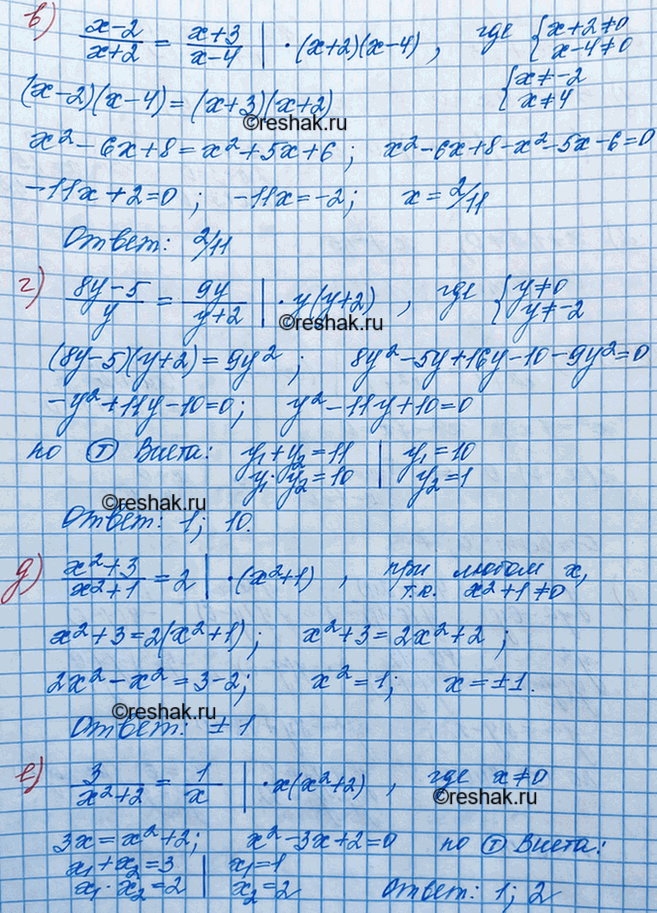 в) (x-2)/(x+2) = (x+3)/(x-4) | ·(x+2)(x-4), где { x+2≠0
x-4≠0
{ x≠-2
x≠4
(x-2)(x-4)=(x+3)(x+2)
©reshak.ru
x²-6x+8=x²+5x+6; x²-6x+8-x²-5x-6=0
-11x+2=0; -11x=-2; x=2/11
Ответ: 2/11
г) (8y-5)/y = 9y/(y+2) | ·y(y+2), где { y≠0
y≠-2
©reshak.ru
(8y-5)(y+2)=9y²; 8y²-5y+16y-10-9y²=0
-y²+11y-10=0; y²-11y+10=0
по Ⓣ Виета: y₁+y₂=11 | y₁=10
y₁·y₂=10 | y₂=1
©reshak.ru
Ответ: 1; 10.
д) (x²+3)/(x²+1) = 2 | ·(x²+1), при любом x,
т.к. x²+1≠0
x²+3=2(x²+1); x²+3=2x²+2;
2x²-x²=3-2; x²=1; x=±1.
©reshak.ru
Ответ: ±1
е) 3/(x²+2) = 1/x | ·x(x²+2), где x≠0
©reshak.ru
3x=x²+2; x²-3x+2=0 по Ⓣ Виета:
x₁+x₂=3 | x₁=1
x₁·x₂=2 | x₂=2 Ответ: 1; 2